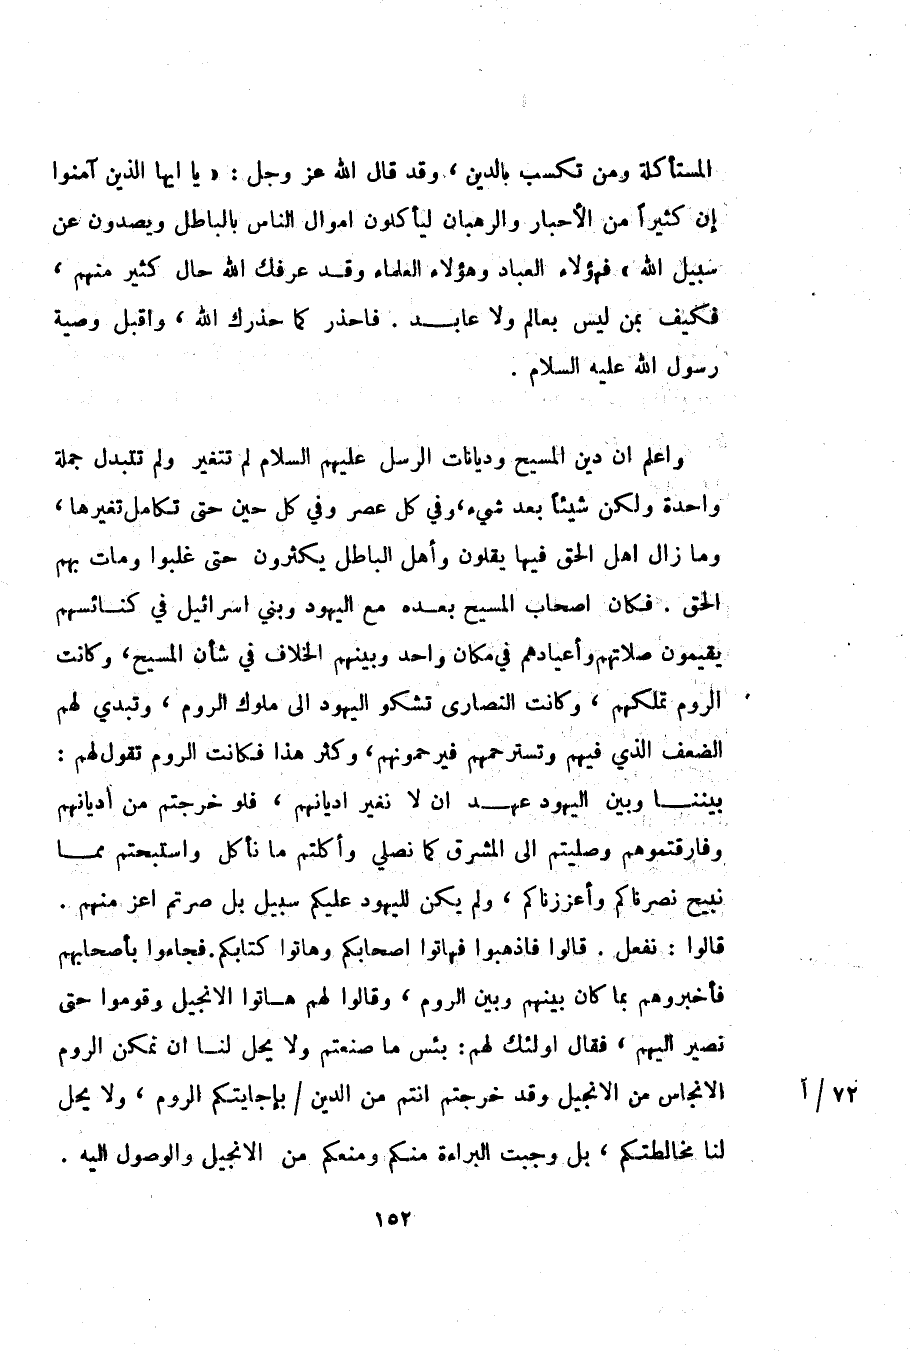 المستأكلة ومن تكسب بالدين ، وقد قال الله عز وجل : « يا ايها الذين آمنوا
إن كثيراً من الأحبار والرهبان ليأكلون اموال الناس بالباطل ويصدون عن
سبيل الله » فهؤلاء العباد وهؤلاء العلماء وقد عرفك الله حال كثير منهم ،
فكيف بمن ليس بعالم ولا عابد . فاحذر كما حذرك الله ، واقبل وصية
رسول الله عليه السلام .
واعلم ان دين المسيح وديانات الرسل عليهم السلام لم تتغير ولم تتبدل جملة
واحدة ولكن شيئاً بعد شيء، وفي كل عصر وفي كل حين حتى تكامل تغيرها ،
وما زال اهل الحق فيها يقلون وأهل الباطل يكثرون حتى غلبوا ومات بهم
الحق . فكان اصحاب المسيح بعده مع اليهود وبني اسرائيل في كنائسهم
يقيمون صلاتهم وأعيادهم في مكان واحد وبينهم الخلاف في شأن المسيح، وكانت
الروم تملكهم ، وكانت النصارى تشكو اليهود الى ملوك الروم ، وتبدي لهم
الضعف الذي فيهم وتسترحمهم فيرحمونهم، وكثر هذا فكانت الروم تقول لهم :
بيننا وبين اليهود عهد ان لا نغير اديانهم ، فلو خرجتم من أديانهم
وفارقتموهم وصليتم الى المشرق كما نصلي وأكلتم ما نأكل واستبحتم مما
نبيح نصرناكم وأعززناكم ، ولم يكن لليهود عليكم سبيل بل صرتم اعز منهم .
قالوا : نفعل . قالوا فاذهبوا فهاتوا اصحابكم وهاتوا كتابكم. فجاءوا بأصحابهم
فأخبروهم بما كان بينهم وبين الروم ، وقالوا لهم هاتوا الانجيل وقوموا حتى
نصير اليهم ، فقال اولئك لهم: بئس ما صنعتم ولا يحل لنا ان نمكن الروم
الانجاس من الانجيل وقد خرجتم انتم من الدين / بإجابتكم الروم ، ولا يحل
٧٢ / آ
لنا مخالطتكم ، بل وجبت البراءة منكم ومنعكم من الانجيل والوصول اليه .
١٥٢